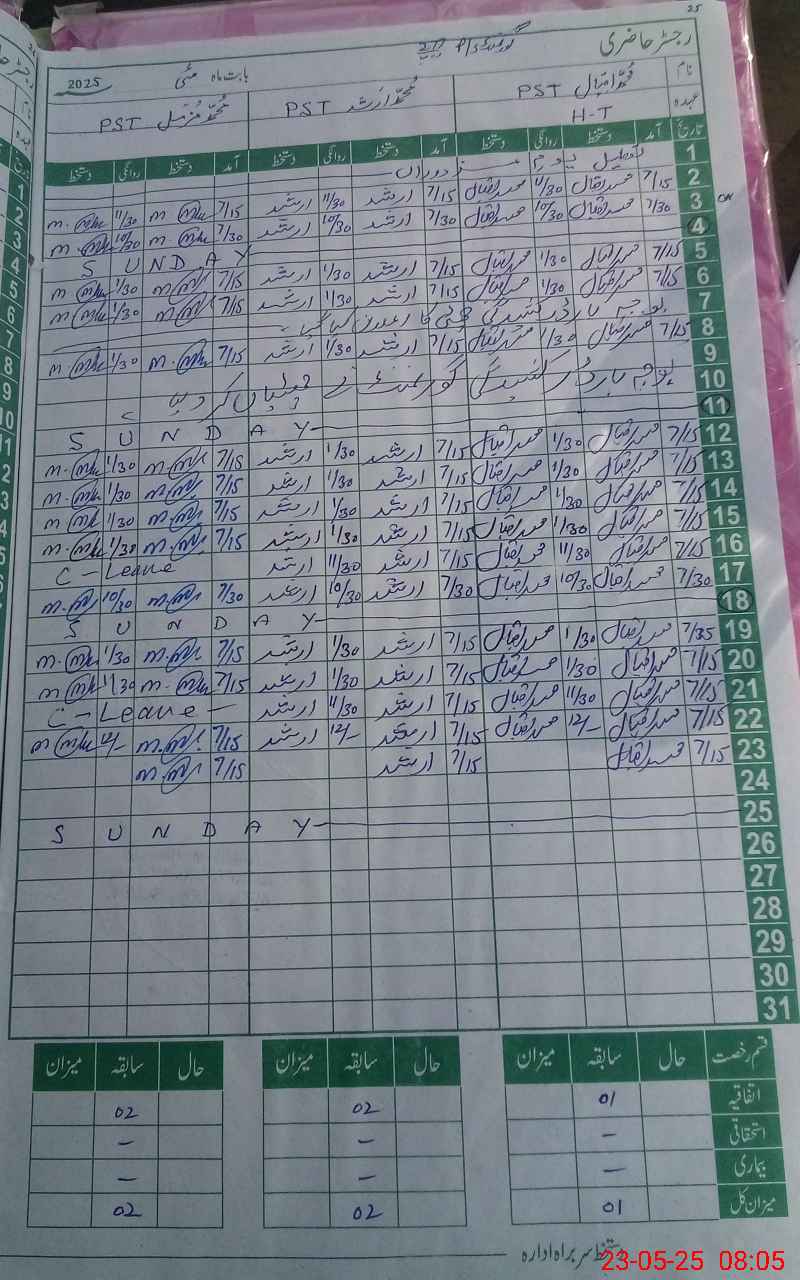 25
رجسٹر حاضری
گورنمنٹ P/S
بابت ماہ مئی 2025
نام محمد اقبال PST محمد ارشد PST محمد مزمل PST
عہدہ H-T
تاریخ آمد دستخط روانگی دستخط آمد دستخط روانگی دستخط آمد دستخط روانگی دستخط
1 تعطیل یوم مزدوراں
2 7/15 محمد اقبال 11/30 محمد اقبال 7/15 ارشد 11/30 ارشد 7/15 11/30
3 7/30 محمد اقبال 10/30 محمد اقبال 7/30 ارشد 10/30 ارشد 7/30 10/30
4 SUNDAY
5 7/15 محمد اقبال 1/30 محمد اقبال 7/15 ارشد 1/30 ارشد 7/15 1/30
6 7/15 محمد اقبال 1/30 محمد اقبال 7/15 ارشد 1/30 ارشد 7/15 1/30
7 بوجہ بارڈر کشیدگی چھٹی کا اعلان کیا گیا
8 7/15 محمد اقبال 1/30 محمد اقبال 7/15 ارشد 1/30 ارشد 7/15 1/30
9
10 بوجہ بارڈر کشیدگی گورنمنٹ نے چھٹیاں کر دیں
11 SUNDAY
12 7/15 محمد اقبال 1/30 محمد اقبال 7/15 ارشد 1/30 ارشد 7/15 1/30
13 7/15 محمد اقبال 1/30 محمد اقبال 7/15 ارشد 1/30 ارشد 7/15 1/30
14 7/15 محمد اقبال 1/30 محمد اقبال 7/15 ارشد 1/30 ارشد 7/15 1/30
15 7/15 محمد اقبال 1/30 محمد اقبال 7/15 ارشد 1/30 ارشد 7/15 1/30
16 7/15 محمد اقبال 11/30 محمد اقبال 7/15 ارشد 11/30 ارشد C-Leave
17 7/30 محمد اقبال 10/30 محمد اقبال 7/30 ارشد 10/30 ارشد 7/30 10/30
18 SUNDAY
19 7/35 محمد اقبال 1/30 محمد اقبال 7/15 ارشد 1/30 ارشد 7/15 1/30
20 7/15 محمد اقبال 1/30 محمد اقبال 7/15 ارشد 1/30 ارشد 7/15 1/30
21 7/15 محمد اقبال 11/30 محمد اقبال 7/15 ارشد 11/30 ارشد C-Leave
22 7/15 محمد اقبال 12/- محمد اقبال 7/15 ارشد 12/- ارشد 7/15 12/-
23 7/15 محمد اقبال 7/15 ارشد 7/15
24
25 SUNDAY
26
27
28
29
30
31
قسم رخصت حال سابقہ میزان حال سابقہ میزان حال سابقہ میزان
اتفاقیہ 01 02 02
استحقاقی - - -
بیماری - - -
میزان کل 01 02 02
دستخط سربراہ ادارہ
23-05-25 08:05